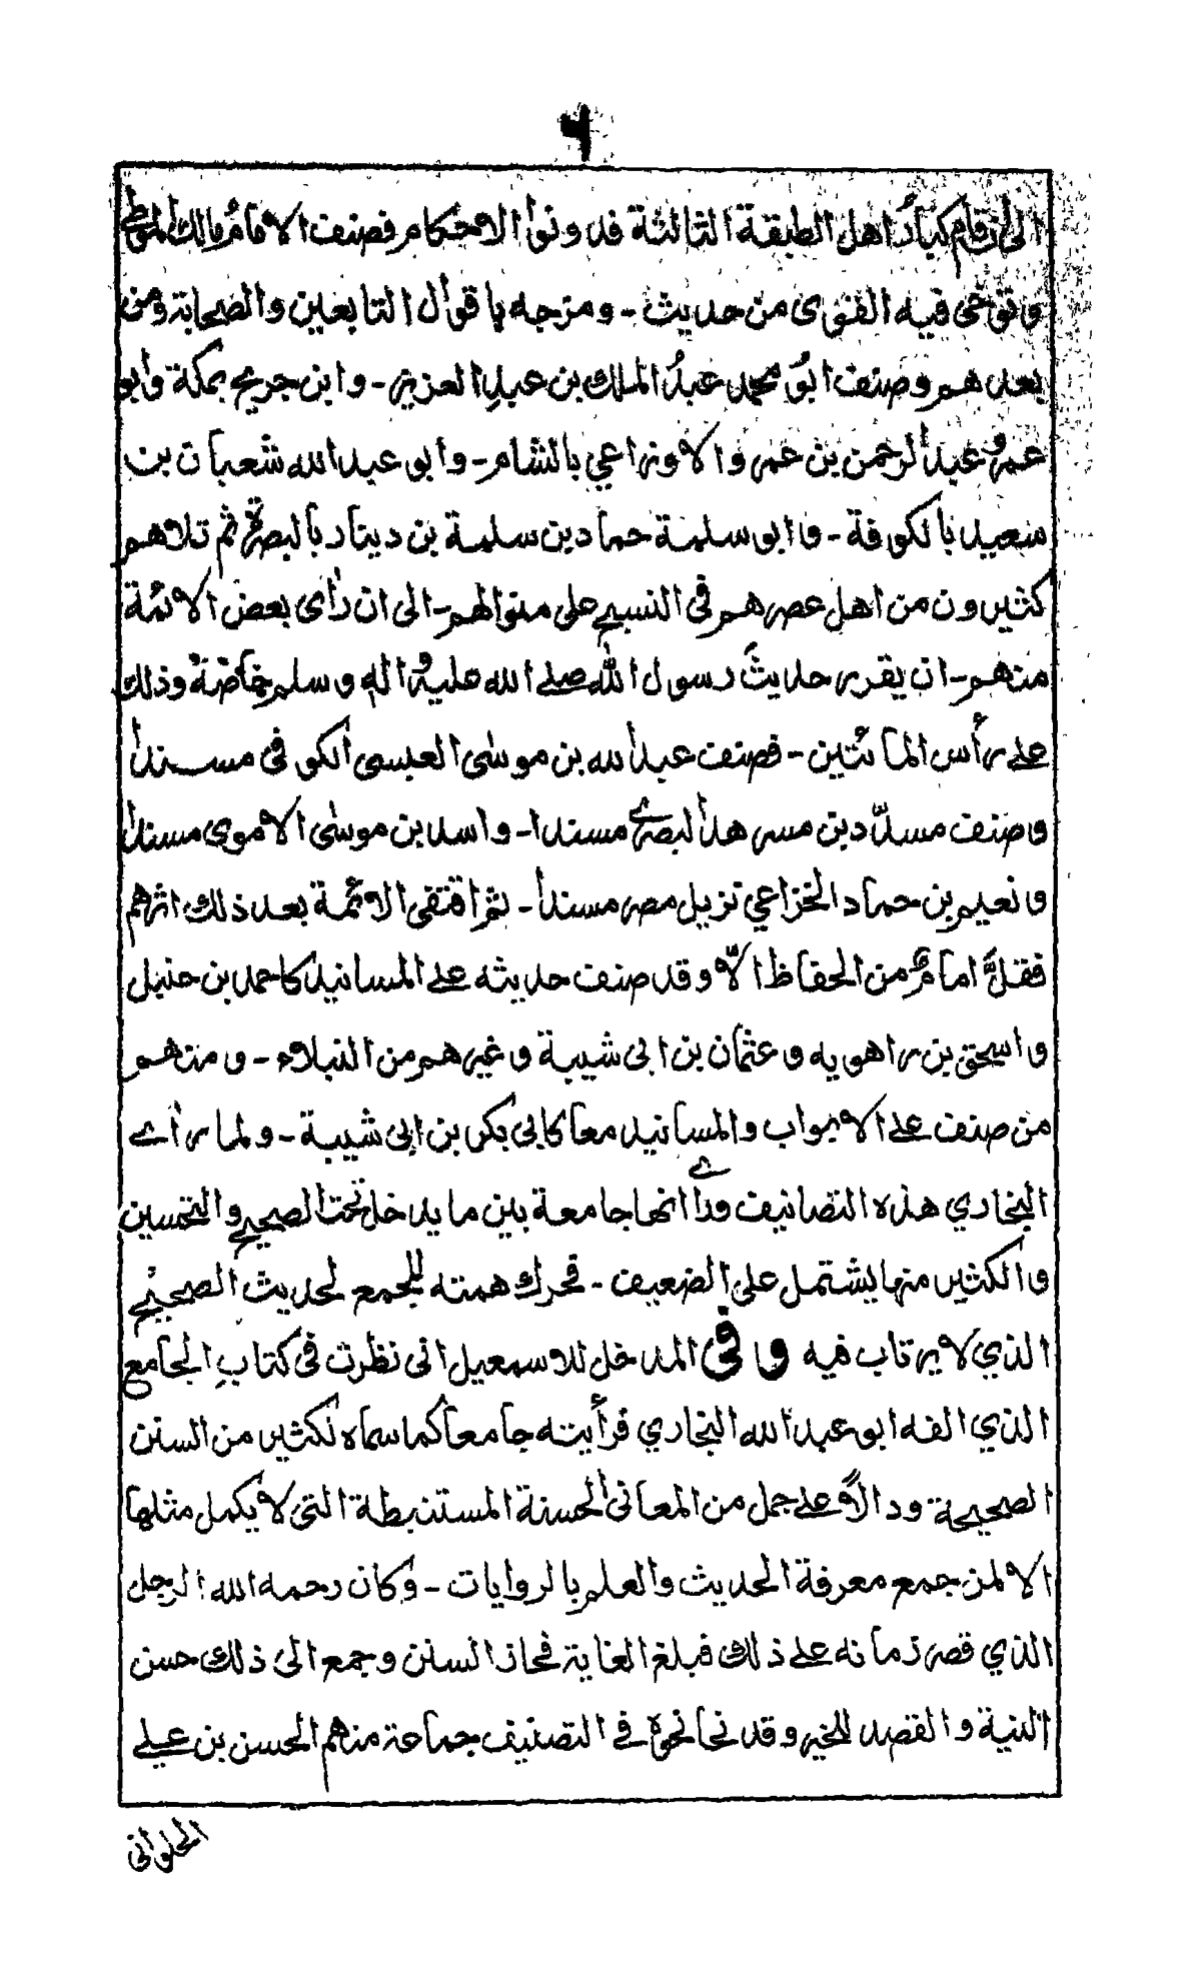 ٦
الى ان قام كبار اهل الطبقة الثالثة فدونوا الاحكام فصنف الامام مالك الموطأ
وتوخى فيه القوى من حديث - ومزجه باقوال التابعين والصحابة ومن
بعدهم وصنف ابو محمد عبد الملك بن عبد العزيز - وابن جريج بمكة وابو
عمرو عبد الرحمن بن عمر والاوزاعي بالشام - وابو عبد الله شعبان بن
سعيد بالكوفة - وابو سلمة حماد بن سلمة بن دينار بالبصرة ثم تلاهم
كثيرون من اهل عصرهم في النسيج على منوالهم - الى ان رأى بعض الائمة
منهم - ان يقرر حديث رسول الله صلے الله عليه واله وسلم خاصة وذلك
علے رأس المائتين - فصنف عبد الله بن موسى العبسى الكوفى مسنداً
وصنف مسدّد بن مسرهد البصرے مسندا - واسد بن موسى الاموى مسنداً
ونعيم بن حماد الخزاعي نزيل مصر مسنداً - ثم اقتفى الائمة بعد ذلك اثرهم
فقلَّ امامٌ من الحفاظ الّا وقد صنف حديثه علے المسانيد كاحمد بن حنبل
واسحق بن راهويه وعثمان بن ابى شيبة وغيرهم من النبلاء - ومنهم
من صنف علے الابواب والمسانيد معا كابى بكر بن ابى شيبة - ولما رأے
البخاري هذه التصانيف ورأے انها جامعة بين ما يدخل تحت الصحيح والتحسين
والكثير منها يشتمل على الضعيف - فحرك همته للجمع لحديث الصحيح
الذي لا يرتاب فيه وفي المدخل للاسمعيل انى نظرت فى كتاب الجامع
الذي الفه ابو عبد الله البخاري فرأيته جامعاً كما سماه لكثير من السنن
الصحيحة ودالاً علے جمل من المعانى الحسنة المستنبطة التى لا يكمل مثلها
الا لمن جمع معرفة الحديث والعلم بالروايات - وكان رحمه الله الرجل
الذي قصر زمانه علے ذلك فبلغ الغاية فحاز السنن وجمع الى ذلك حسن
النية والقصد للخير وقد نحا نحوه فے التصنيف جماعة منهم الحسن بن علے
الحلوانى